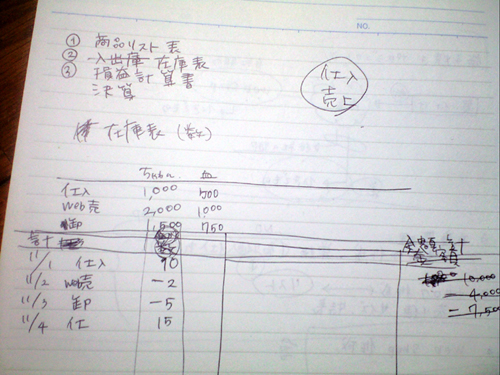 NO.
① 商品リスト表
② 入出庫 在庫表
③ 損益計算書
決算
仕入
売上
在庫表 (数)
皿
仕入 1,000 500
Web売 2,000 1,000
卸 1,500 750
合計
11/1 仕入 10
11/2 web売 -2
11/3 卸 -5
11/4 仕 15
10,000
4,000
-7,500